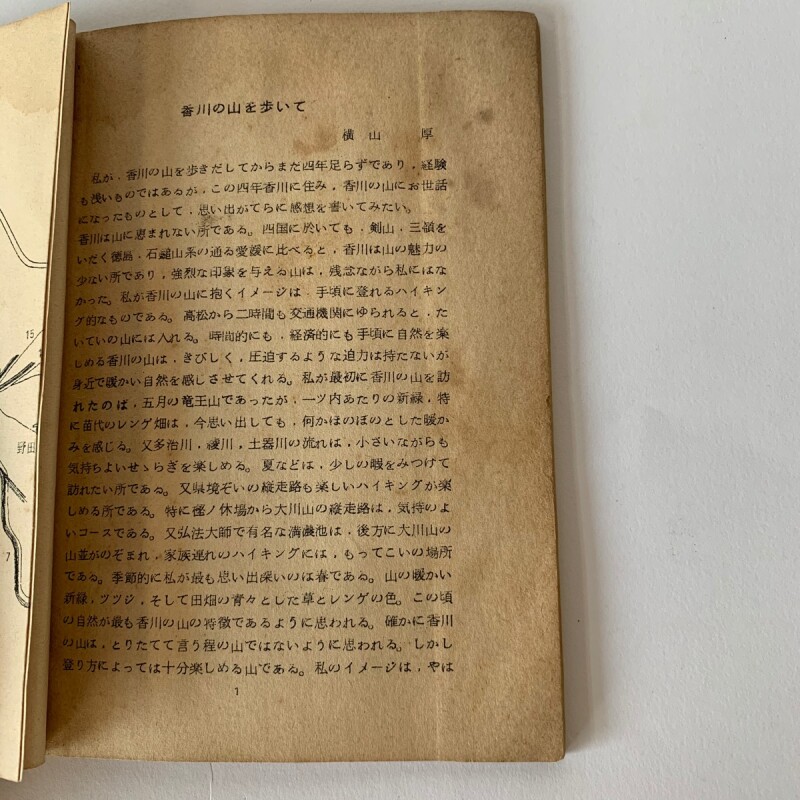 香川の山を歩いて
横山　厚
私が、香川の山を歩きだしてからまだ四年足らずであり、経験
も浅いものではあるが、この四年香川に住み、香川の山にお世話
になったものとして、思い出がてらに感想を書いてみたい。
香川は山に恵まれない所である。四国に於いても、剣山、三嶺を
いだく徳島、石鎚山系の通る愛媛に比べると、香川は山の魅力の
少ない所であり、強烈な印象を与える山は、残念ながら私にはな
かった。私が香川の山に抱くイメージは、手頃に登れるハイキン
グ的なものである。高松から二時間も交通機関にゆられると、た
いていの山には入れる。時間的にも、経済的にも手頃に自然を楽
しめる香川の山は、きびしく、圧迫するような迫力は持たないが
身近で暖かい自然を感じさせてくれる。私が最初に香川の山を訪
れたのは、五月の竜王山であったが、一ツ内あたりの新緑、特
に苗代のレンゲ畑は、今思い出しても、何かほのぼのとした暖か
みを感じる。又多治川、綾川、土器川の流れは、小さいながらも
気持ちよいせゝらぎを楽しめる。夏などは、少しの暇をみつけて
訪れたい所である。又県境ぞいの縦走路も楽しいハイキングが楽
しめる所である。特に樫ノ休場から大川山の縦走路は、気持のよ
いコースである。又弘法大師で有名な満濃池は、後方に大川山の
山並がのぞまれ、家族連れのハイキングには、もってこいの場所
である。季節的に私が最も思い出深いのは春である。山の暖かい
新緑、ツツジ、そして田畑の青々とした草とレンゲの色。この頃
の自然が最も香川の山の特徴であるように思われる。確かに香川
の山は、とりたてて言う程の山ではないように思われる。しかし
登り方によっては十分楽しめる山である。私のイメージは、やは
1
15
野田
7